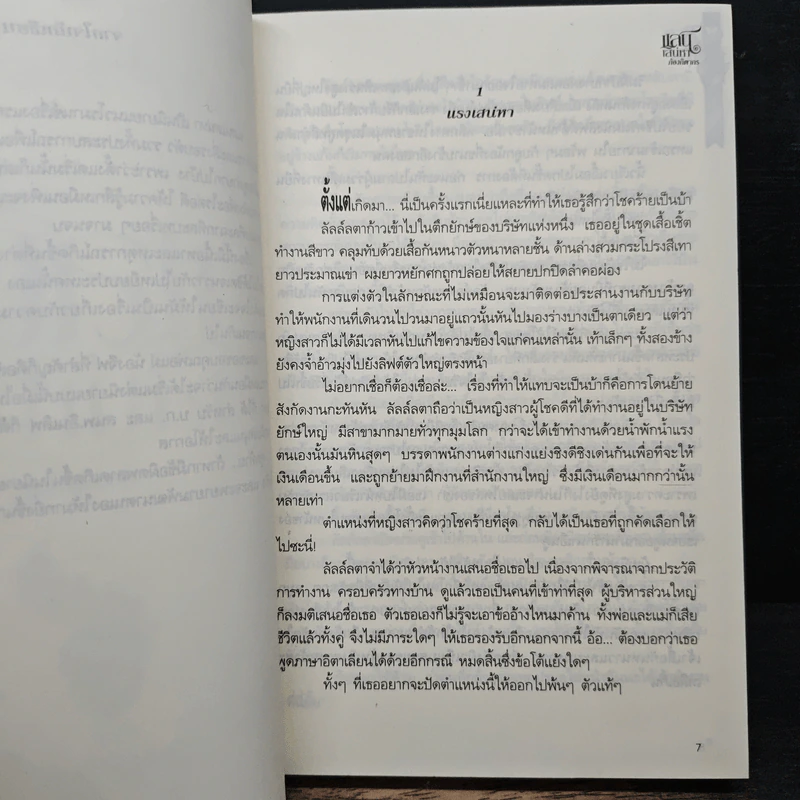 แสน
เสน่หา
ภัยอัคราภร
1
แรงเสน่หา
ตั้งแต่เกิดมา... นี่เป็นครั้งแรกเนี่ยแหละที่ทำให้เธอรู้สึกว่าโชคร้ายเป็นบ้า
ลัลล์ลตาก้าวเข้าไปในตึกยักษ์ของบริษัทแห่งหนึ่ง เธออยู่ในชุดเสื้อเชิ้ต
ทำงานสีขาว คลุมทับด้วยเสื้อกันหนาวตัวหนาหลายชั้น ด้านล่างสวมกระโปรงสีเทา
ยาวประมาณเข่า ผมยาวหยักศกถูกปล่อยให้สยายปกปิดลำคอผ่อง
การแต่งตัวในลักษณะที่ไม่เหมือนจะมาติดต่อประสานงานกับบริษัท
ทำให้พนักงานที่เดินวนไปวนมาอยู่แถวนั้นหันไปมองร่างบางเป็นตาเดียว แต่ว่า
หญิงสาวก็ไม่ได้มีเวลาหันไปแก้ไขความข้องใจแก่คนเหล่านั้น เท้าเล็กๆ ทั้งสองข้าง
ยังคงจ้ำอ้าวมุ่งไปยังลิฟต์ตัวใหญ่ตรงหน้า
ไม่อยากเชื่อก็ต้องเชื่อล่ะ... เรื่องที่ทำให้แทบจะเป็นบ้าก็คือการโดนย้าย
สังกัดงานกะทันหัน ลัลล์ลตาถือว่าเป็นหญิงสาวผู้โชคดีที่ได้ทำงานอยู่ในบริษัท
ยักษ์ใหญ่ มีสาขามากมายทั่วทุกมุมโลก กว่าจะได้เข้าทำงานด้วยน้ำพักน้ำแรง
ตนเองนั้นมันหินสุดๆ บรรดาพนักงานต่างแก่งแย่งชิงดีชิงเด่นกันเพื่อที่จะให้
เงินเดือนขึ้น และถูกย้ายมาฝึกงานที่สำนักงานใหญ่ ซึ่งมีเงินเดือนมากกว่านั้น
หลายเท่า
ตำแหน่งที่หญิงสาวคิดว่าโชคร้ายที่สุด กลับได้เป็นเธอที่ถูกคัดเลือกให้
ไปซะนี่!
ลัลล์ลตาจำได้ว่าหัวหน้างานเสนอชื่อเธอไป เนื่องจากพิจารณาจากประวัติ
การทำงาน ครอบครัวทางบ้าน ดูแล้วเธอเป็นคนที่เข้าท่าที่สุด ผู้บริหารส่วนใหญ่
ก็ลงมติเสนอชื่อเธอ ตัวเธอเองก็ไม่รู้จะเอาข้ออ้างไหนมาค้าน ทั้งพ่อและแม่ก็เสีย
ชีวิตแล้วทั้งคู่ จึงไม่มีภาระใดๆ ให้เธอรองรับอีกนอกจากนี้ อ้อ... ต้องบอกว่าเธอ
พูดภาษาอิตาเลียนได้ด้วยอีกกรณี หมดสิ้นซึ่งข้อโต้แย้งใดๆ
ทั้งๆ ที่เธออยากจะปัดตำแหน่งนี้ให้ออกไปพ้นๆ ตัวแท้ๆ
7